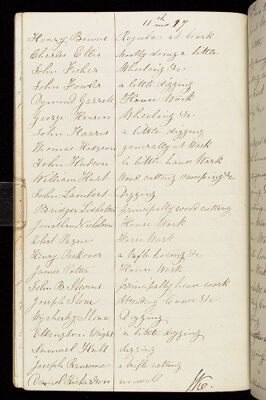 11th mo 27
Henry Binns Regular at Work
Charles Ellis Mostly doing a little
John Fisher Wheeling &c
John Fowler a little digging
Edmund Garrett House Work
George Hanson Wheeling &c
John Harris a little digging
Thomas generally at Work
John Hudson a little house Work
William Hurt Wood cutting sweeping &c
John Lambert Digging
Bridges principally wood cutting
Jonathan House Work
Robert Payne House Work
Henry a trifle &c
James House Work
John B principally house work
Joseph Stone Attending Cows &c
Stone Digging
Wright a little digging
Samuel Hull digging
Joseph Ransome a trifle
Daniel Richardson unwell